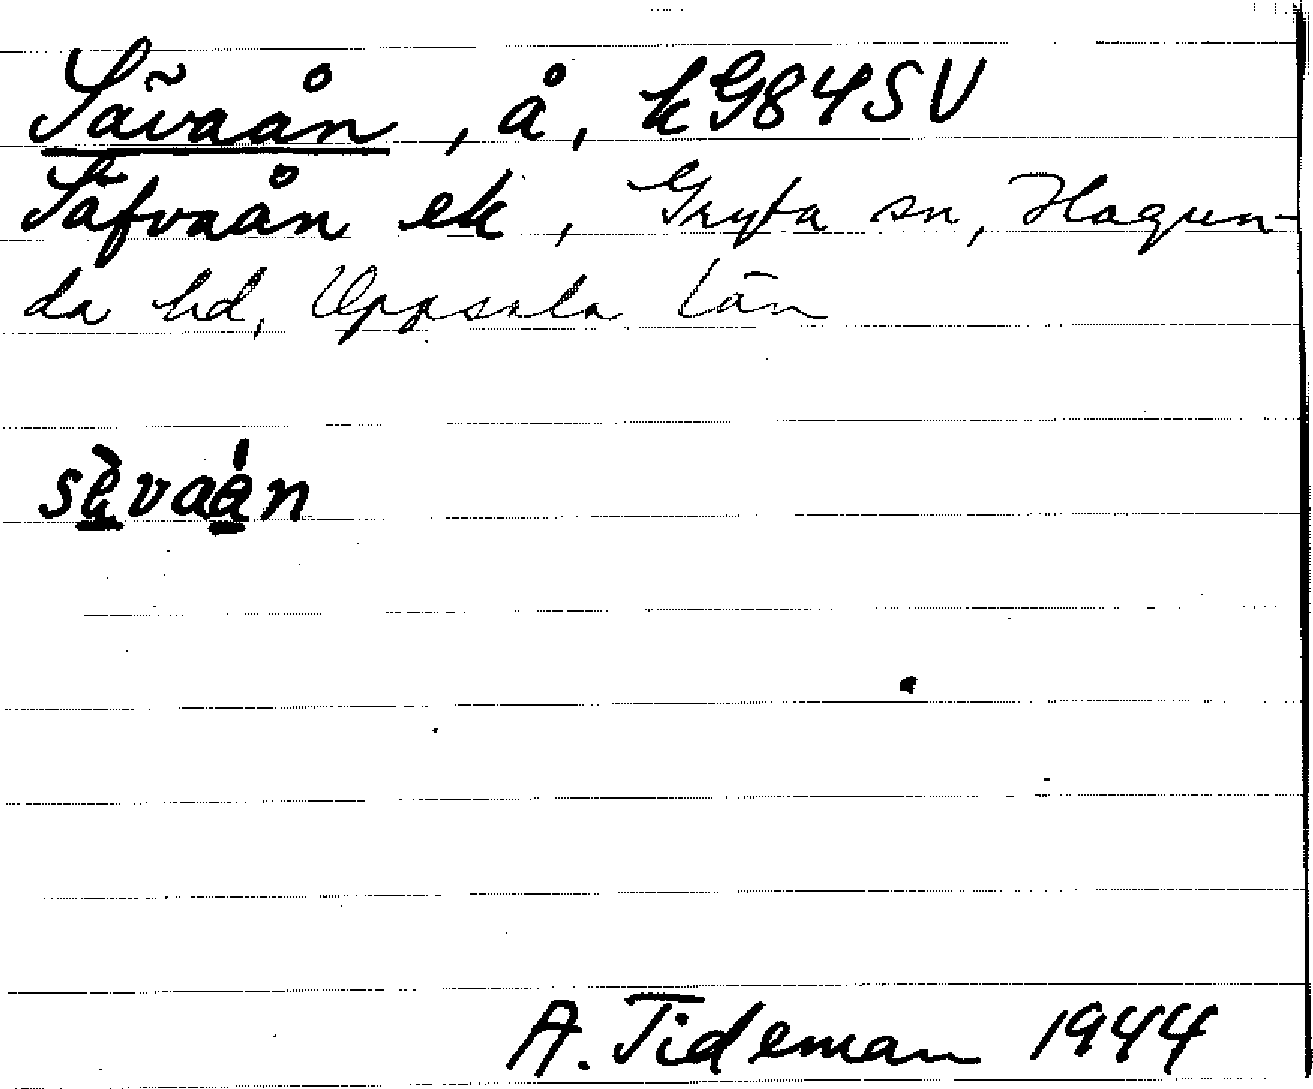 Sävaån, å, kG84SV
Säfvaån ek, Gryta sn, Hagun-
da hd, Uppsala län
sèvaán
A. Tideman 1944